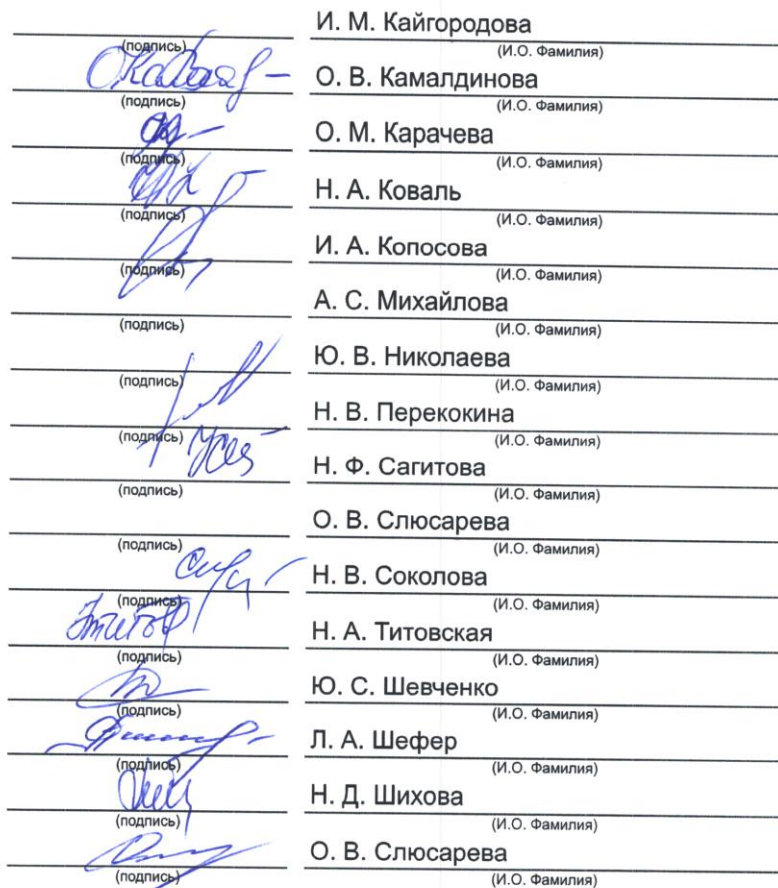 И. М. Кайгородова
(подпись) (И.О. Фамилия)
О. В. Камалдинова
(подпись) (И.О. Фамилия)
О. М. Карачева
(подпись) (И.О. Фамилия)
Н. А. Коваль
(подпись) (И.О. Фамилия)
И. А. Копосова
(подпись) (И.О. Фамилия)
А. С. Михайлова
(подпись) (И.О. Фамилия)
Ю. В. Николаева
(подпись) (И.О. Фамилия)
Н. В. Перекокина
(подпись) (И.О. Фамилия)
Н. Ф. Сагитова
(подпись) (И.О. Фамилия)
О. В. Слюсарева
(подпись) (И.О. Фамилия)
Н. В. Соколова
(подпись) (И.О. Фамилия)
Н. А. Титовская
(подпись) (И.О. Фамилия)
Ю. С. Шевченко
(подпись) (И.О. Фамилия)
Л. А. Шефер
(подпись) (И.О. Фамилия)
Н. Д. Шихова
(подпись) (И.О. Фамилия)
О. В. Слюсарева
(подпись) (И.О. Фамилия)